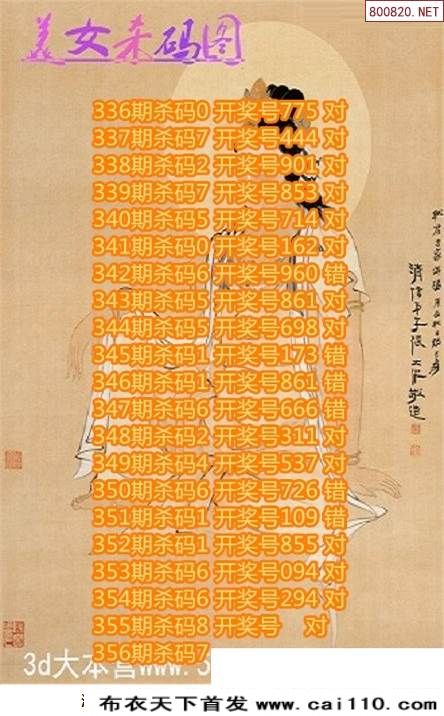 800820.NET
美女杀码图
336期杀码0 开奖号775 对
337期杀码7 开奖号444 对
338期杀码2 开奖号901 对
339期杀码7 开奖号853 对
340期杀码5 开奖号714 对
341期杀码0 开奖号162 对
342期杀码6 开奖号960 错
343期杀码5 开奖号861 对
344期杀码5 开奖号698 对
345期杀码1 开奖号173 错
346期杀码1 开奖号861 错
347期杀码6 开奖号666 错
348期杀码2 开奖号311 对
349期杀码4 开奖号537 对
350期杀码6 开奖号726 错
351期杀码1 开奖号109 错
352期杀码1 开奖号855 对
353期杀码6 开奖号094 对
354期杀码6 开奖号294 对
355期杀码8 开奖号 对
356期杀码7
3d大本营www.3
布衣天下首发 www.cai110.com